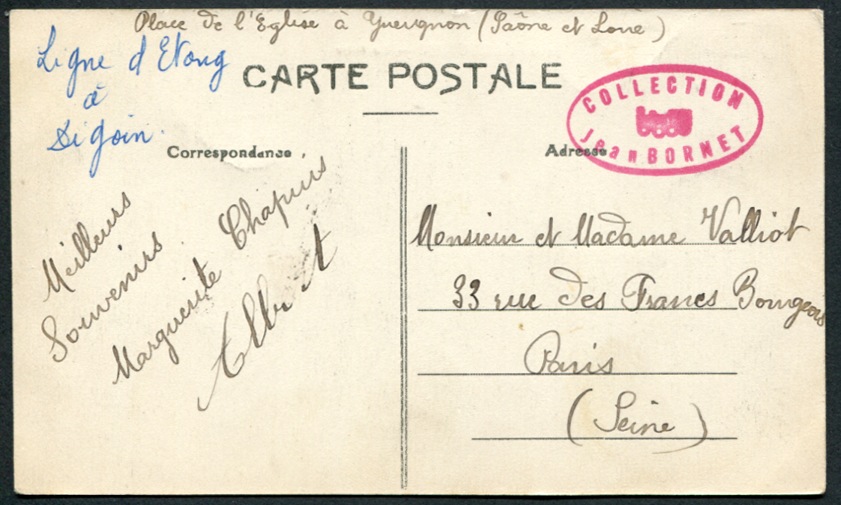 Place de l'Eglise à Yguerignon (Saône et Loire)
Ligne d'Etang
à
Digoin.
CARTE POSTALE
COLLECTION
Jean BORNET
Correspondance
Adresse
Meilleurs
Souvenirs
Marguerite Chapuis
Albert
Monsieur et Madame Valliot
33 rue des Francs Bourgeois
Paris
(Seine)